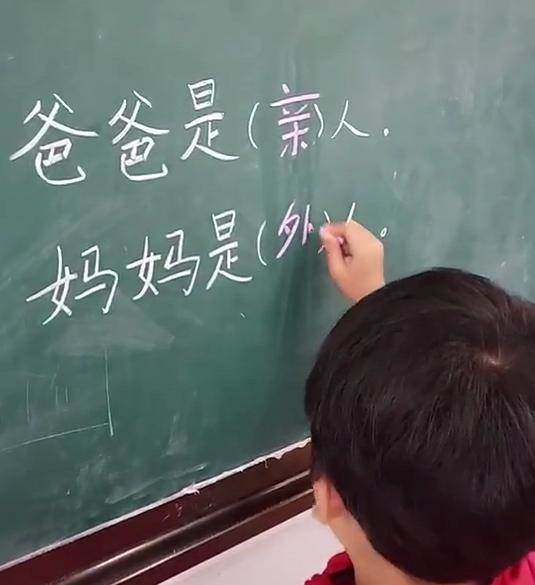 爸爸是(亲)人.
妈妈是(外)人。